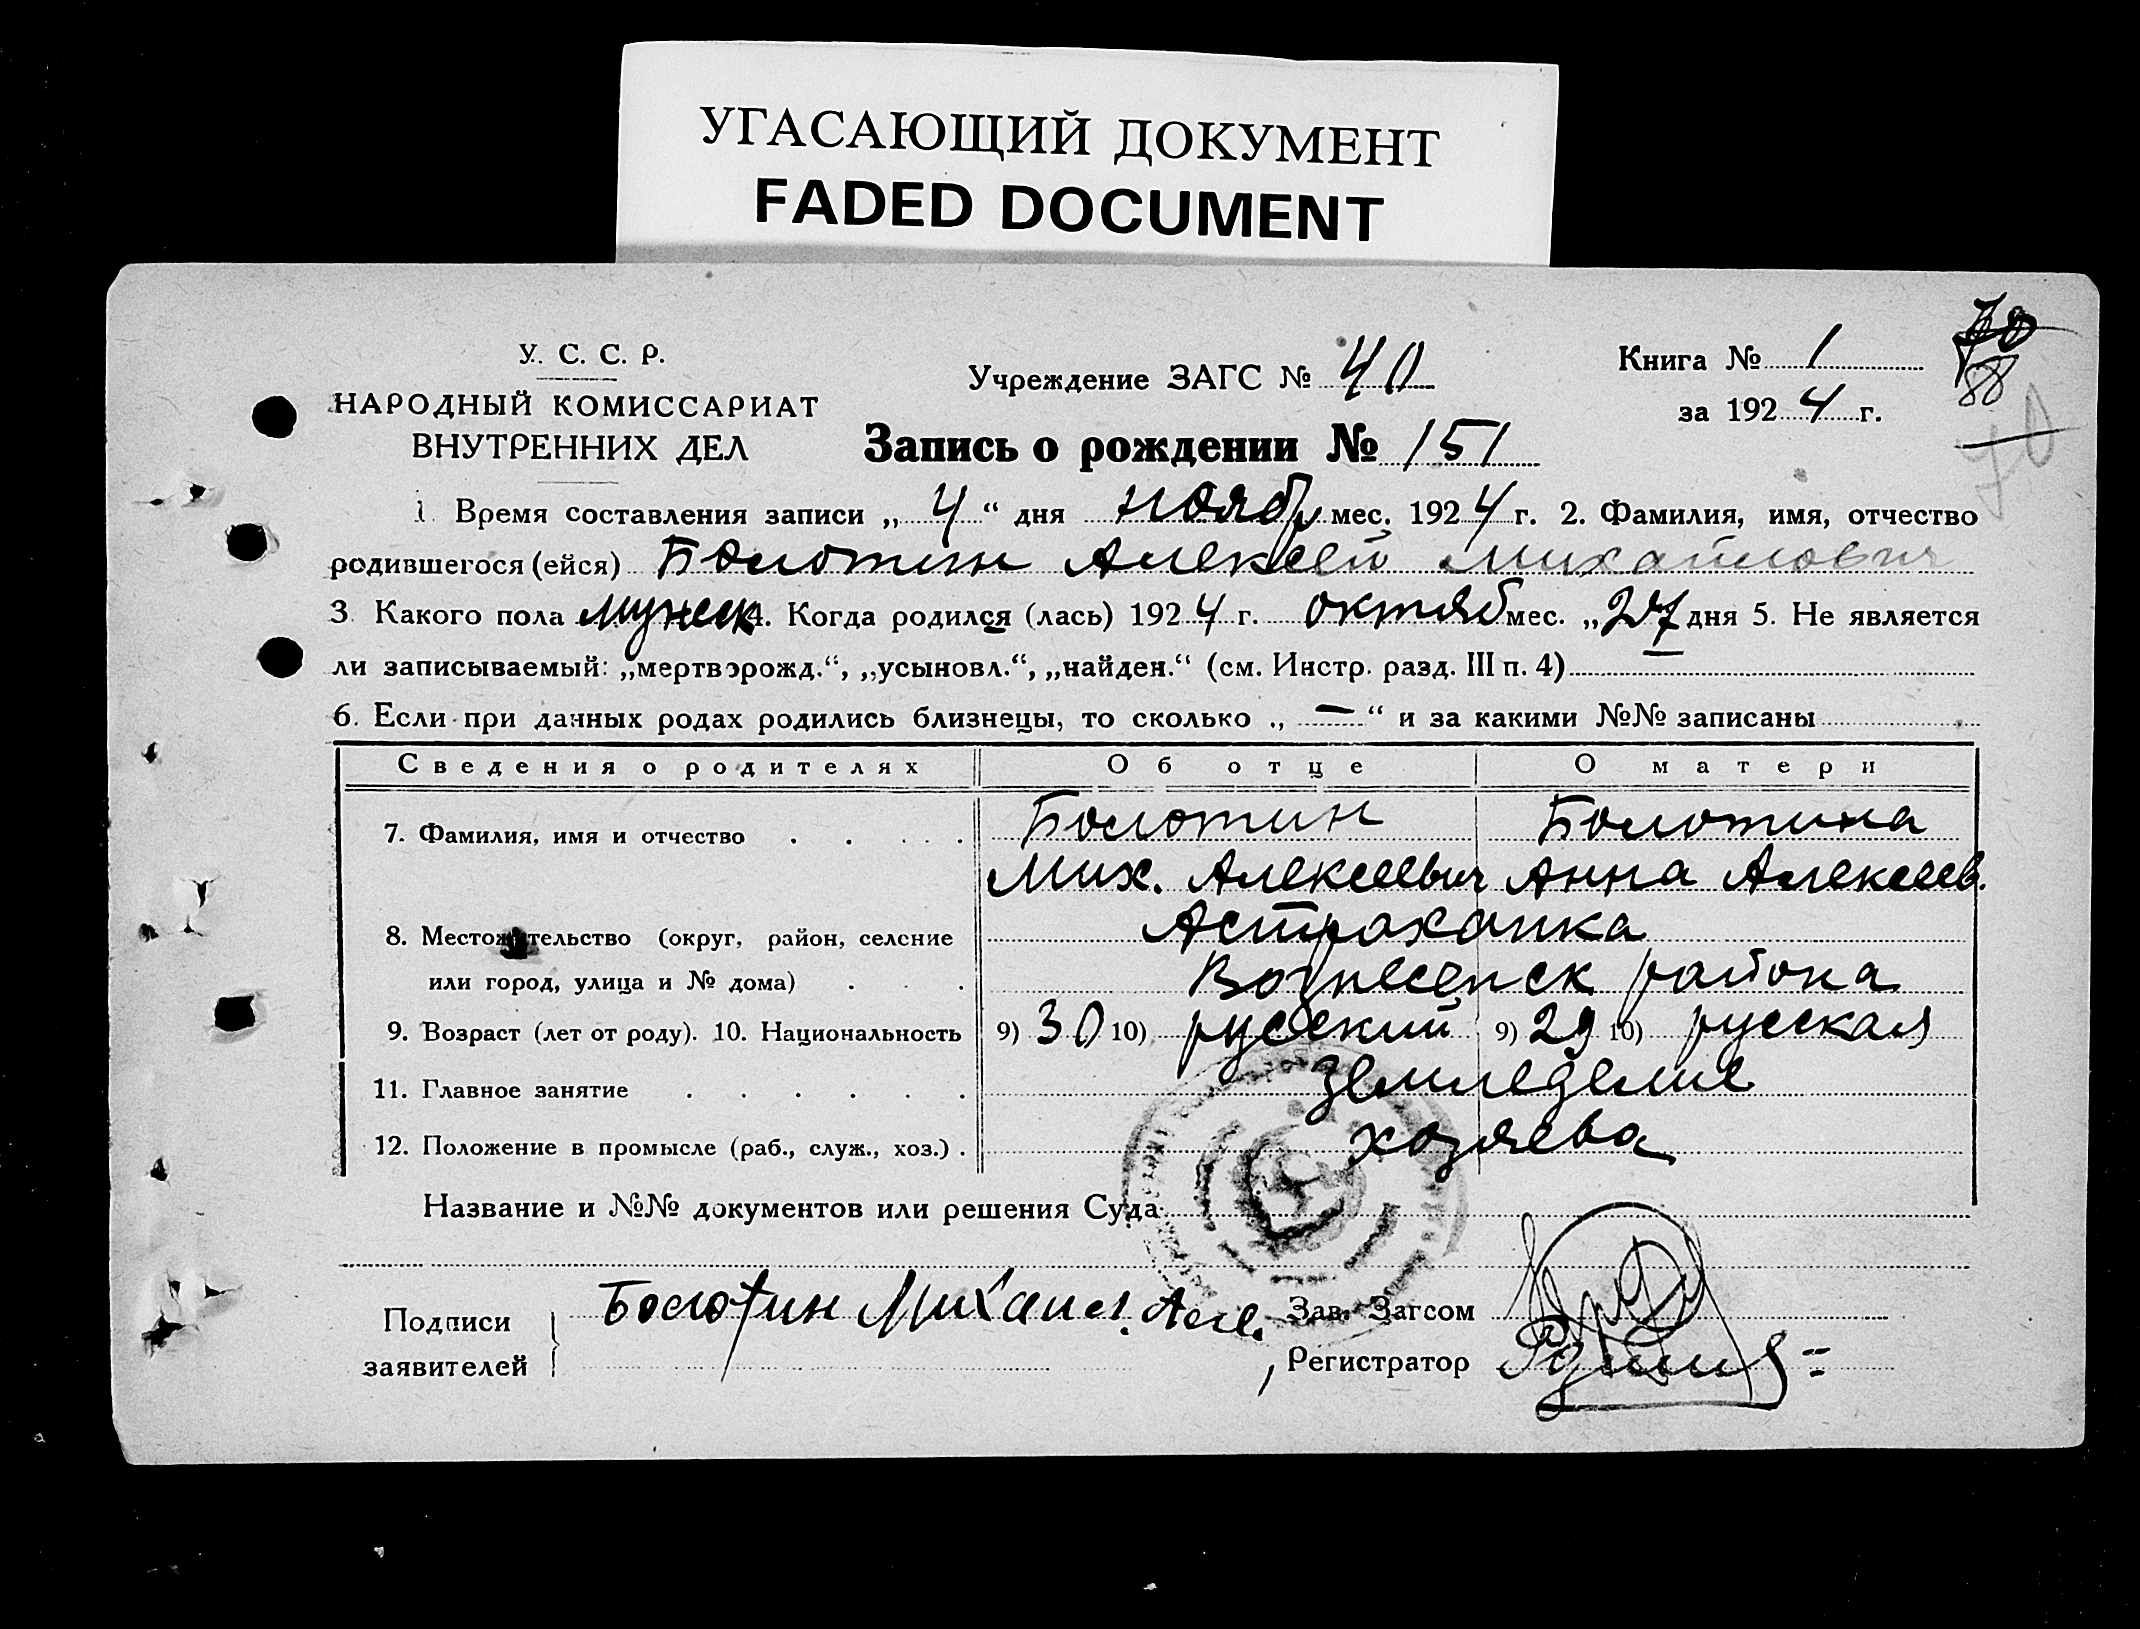 УГАСАЮЩИЙ ДОКУМЕНТ
FADED DOCUMENT
У. С. С. Р.
НАРОДНЫЙ КОМИССАРИАТ
ВНУТРЕННИХ ДЕЛ
Учреждение ЗАГС № 40
Книга № 1
за 1924 г.
70
88
70
Запись о рождении № 151
1. Время составления записи „4“ дня ноябр мес. 1924 г. 2. Фамилия, имя, отчество
родившегося (ейся) Болотин Алексей Михайлович
3. Какого пола мужск 4. Когда родился (лась) 1924 г. октяб мес. „27 дня 5. Не является
ли записываемый: „мертворожд.“, „усыновл.“, „найден.“ (см. Инстр. разд. III п. 4)
6. Если при данных родах родились близнецы, то сколько „ — “ и за какими №№ записаны
Сведения о родителях Об отце О матери
7. Фамилия, имя и отчество Болотин Болотина
Мих. Алексеевич Анна Алексеев.
8. Местожительство (округ, район, селение Астраханка
или город, улица и № дома) Вознесенск района
9. Возраст (лет от роду). 10. Национальность 9) 30 10) русский 9) 29 10) русская
11. Главное занятие земледелие
12. Положение в промысле (раб., служ., хоз.) хозяева
Название и №№ документов или решения Суда
Подписи
заявителей
Болотин Михаил. Але.
Зав. Загсом
Регистратор